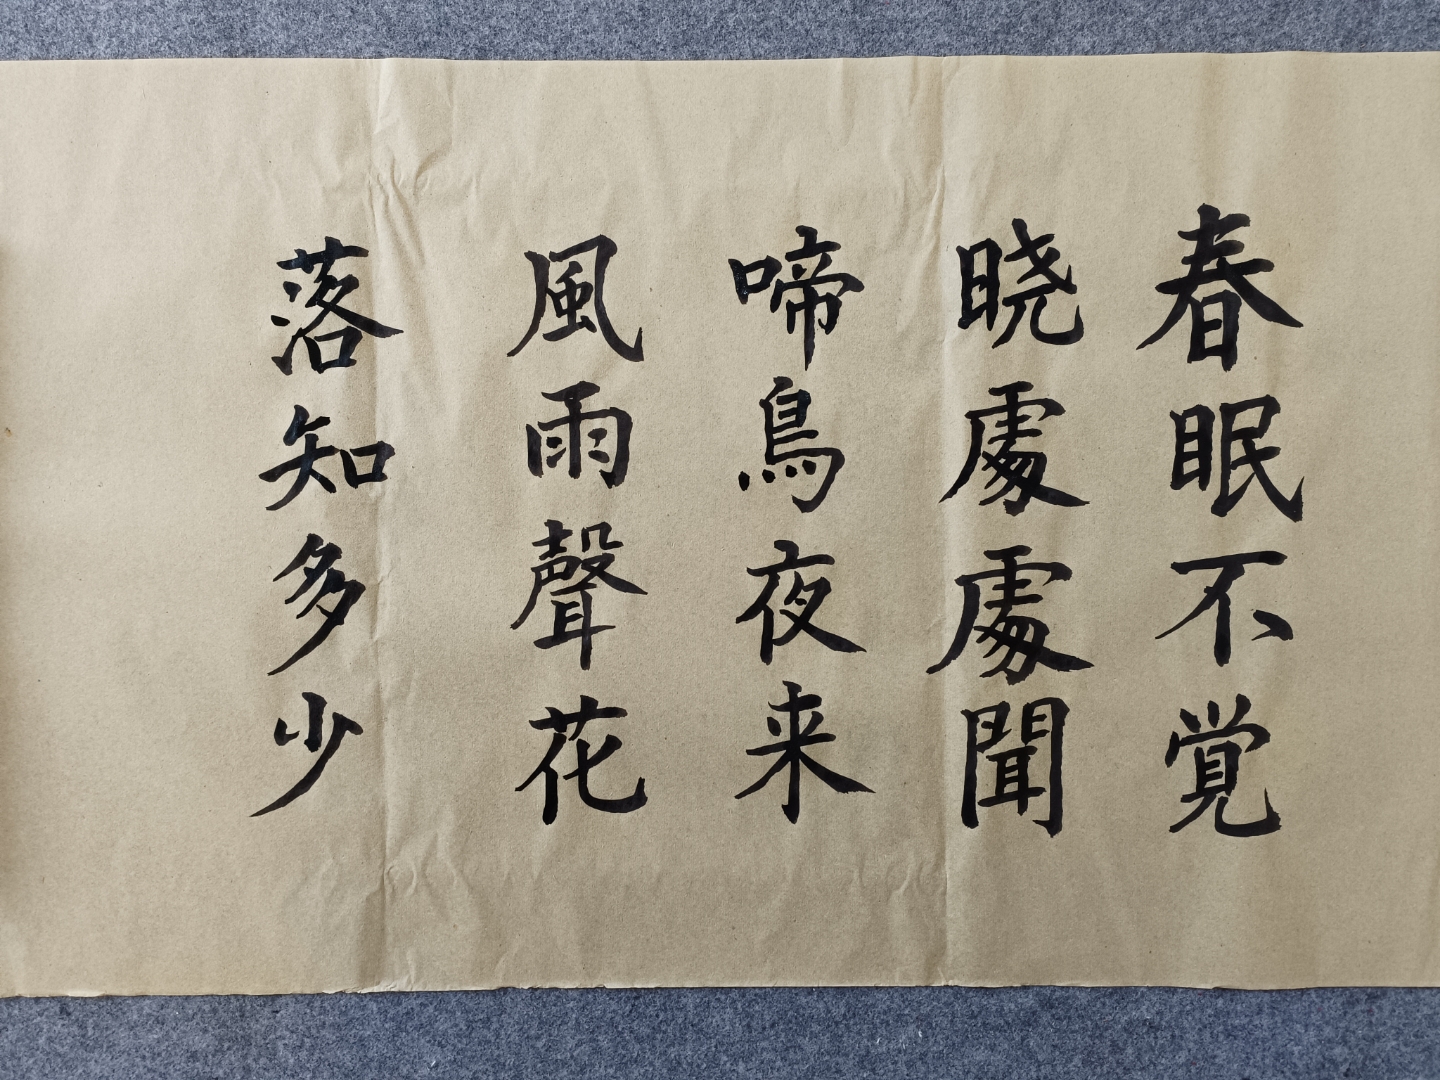 春眠不覚
晓處處聞
啼鳥夜来
風雨聲花
落知多少